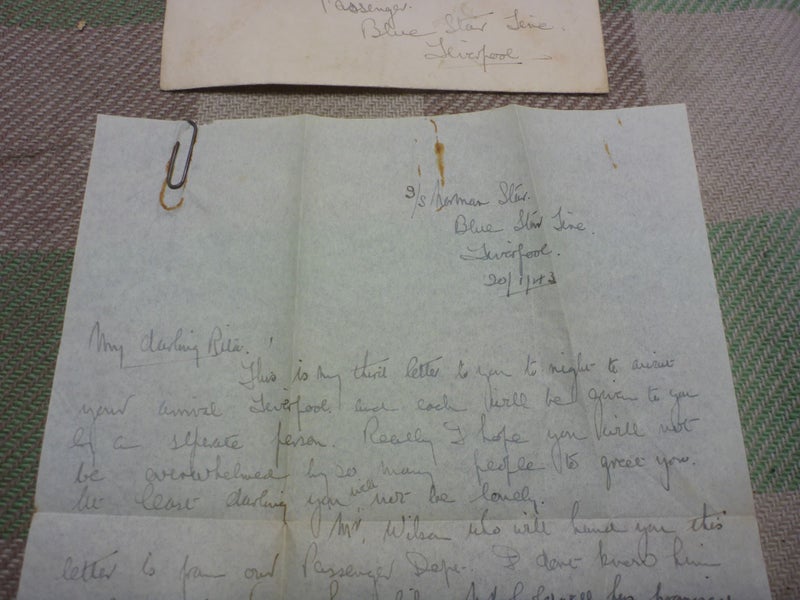 Passenger.
Blue Star Line.
Liverpool
S/S Norman Star.
Blue Star Line.
Liverpool.
20/1/43
My darling Rita.
This is my third letter to you to night to await
your arrival Liverpool and each will be given to you
by a seperate person. Really I hope you will not
be overwhelmed by so many people to greet you.
At least darling you will not be lonely.
Mr. Wilson who will hand you this
letter is from our Passenger Dept. I dont know him
his